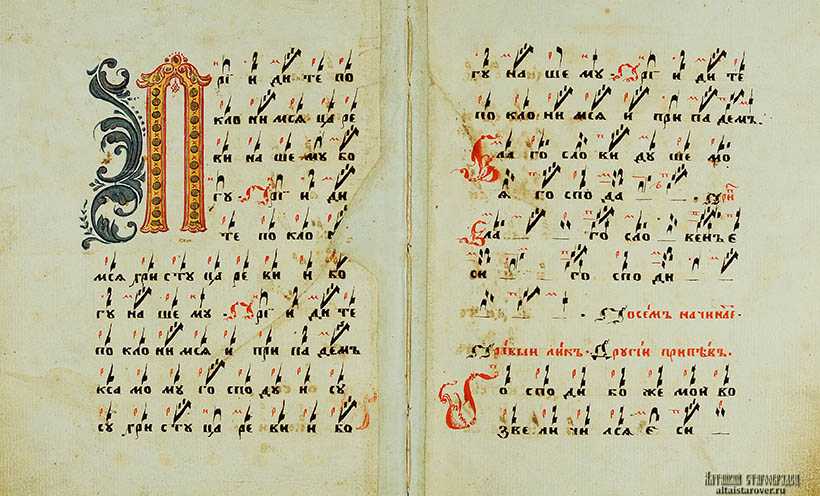 Прї и ди те по
кло ни мся ца ре
ви на ше му бо
гу · Прї и ди
те по кло ни
мся хри сту ца ре ви и бо
гу на ше му · Прї и ди те
по кло ни мся и при па демъ
к са мо му го спо ду и су
су хри сту ца ре ви и бо
гу на ше му · Прї и ди те
по кло ни мся и при па демъ.
Бла го сло ви ду ше мо
я го спо да
Бла го сло венъ є
си го спо ди
Посемъ начинает
Правыи ликъ · Другїи припѣвъ.
Го спо ди бо же мои во
зве ли чи лся є си
Алтайский старообрядец
altaistarover.ru